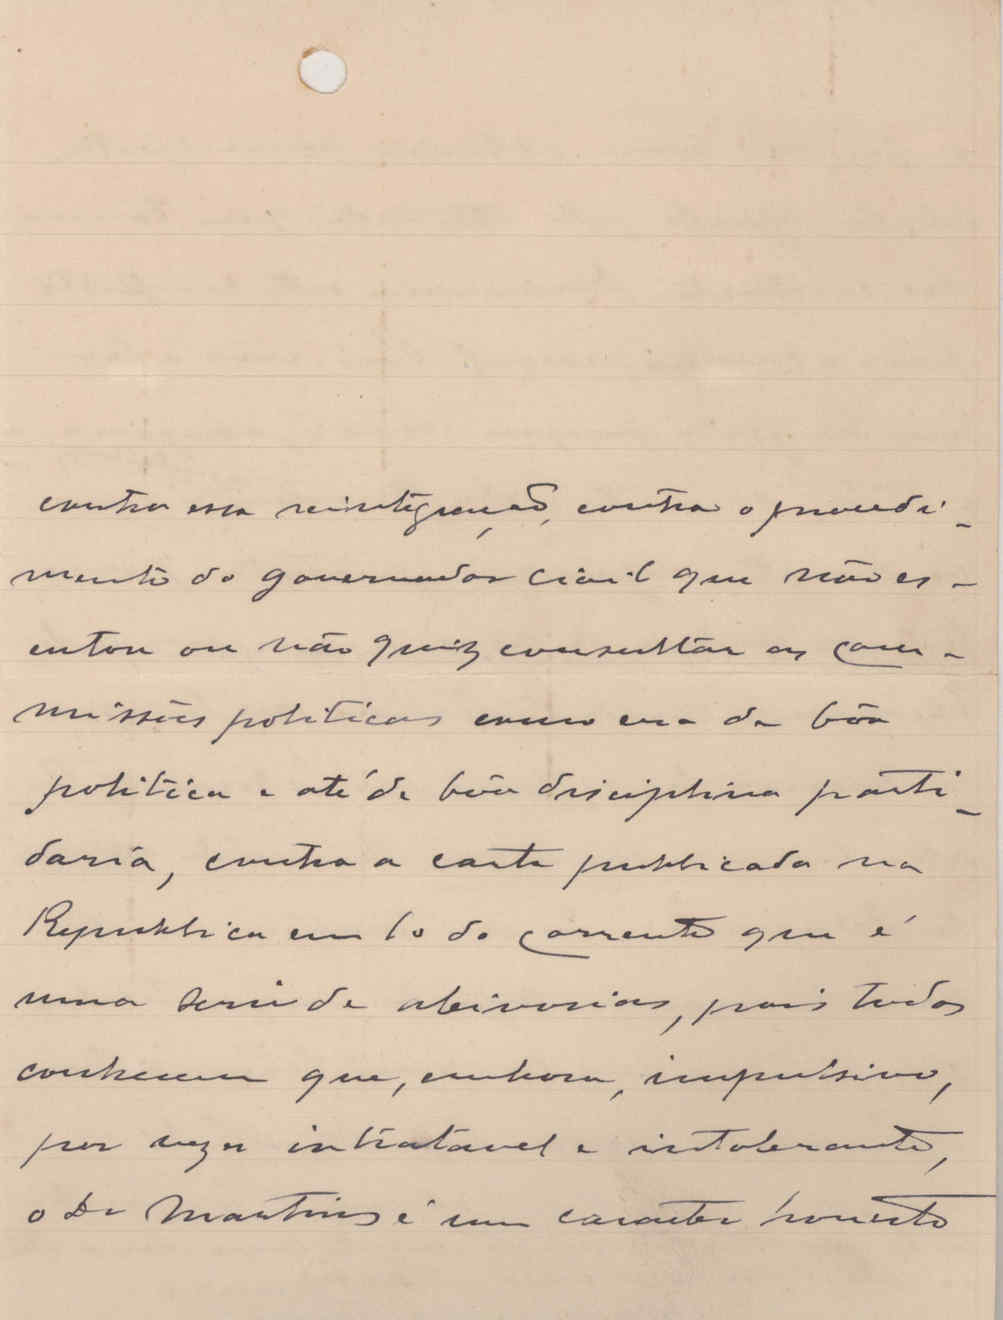 contra essa reintegração, contra o procedi-
mento do governador civil que não es-
cutou ou não quiz consultar as com-
missões politicas como era de bôa
politica e até de bôa disciplina parti-
daria, contra a carta publicada na
Republica em 10 do corrente que é
uma serie de aleivosias, pois todos
conhecem que, embora, impulsivo,
por vezes intratavel e intolerante,
o Dr Martins é um caracter honesto